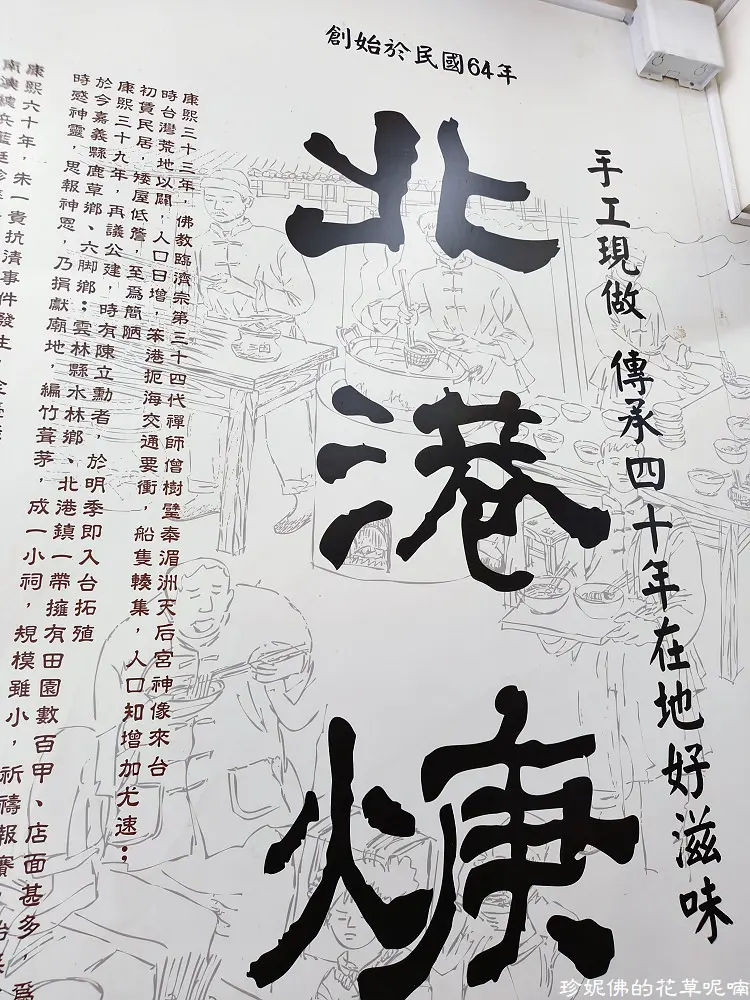 創始於民國64年
手工現做 傳承四十年在地好滋味
北港焿
康熙三十三年,佛教臨濟宗第三十四代禪師僧樹壁奉湄洲天后宮神像來台
時台灣荒地以闢,人口日增,笨港扼海交通要衝,船隻輳集,人口知增加尤速;
初賃民居,矮屋低簷,至為簡陋
康熙三十九年,再議公建,時有陳立勳者,於明季即入台拓殖
於今嘉義縣鹿草鄉、六腳鄉;雲林縣水林鄉、北港鎮一帶擁有田園數百甲、店面甚多,爲
時感神靈,思報神恩,乃捐獻廟地,編竹葺茅,成一小祠,規模雖小,祈禱報賽
康熙六十年,朱一貴抗清事件發生,
珍妮佛的花草呢喃